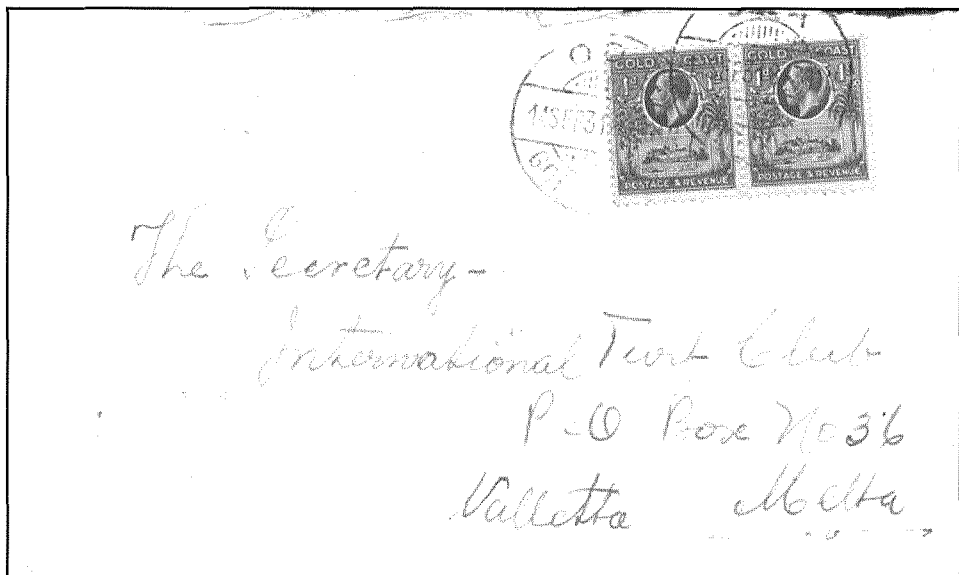 GOLD COAST
1d 1d
POSTAGE & REVENUE
GOLD COAST
1d 1d
POSTAGE & REVENUE
14SEP31
The Secretary-
International Turf Club
P-O Box No 36
Valletta Malta